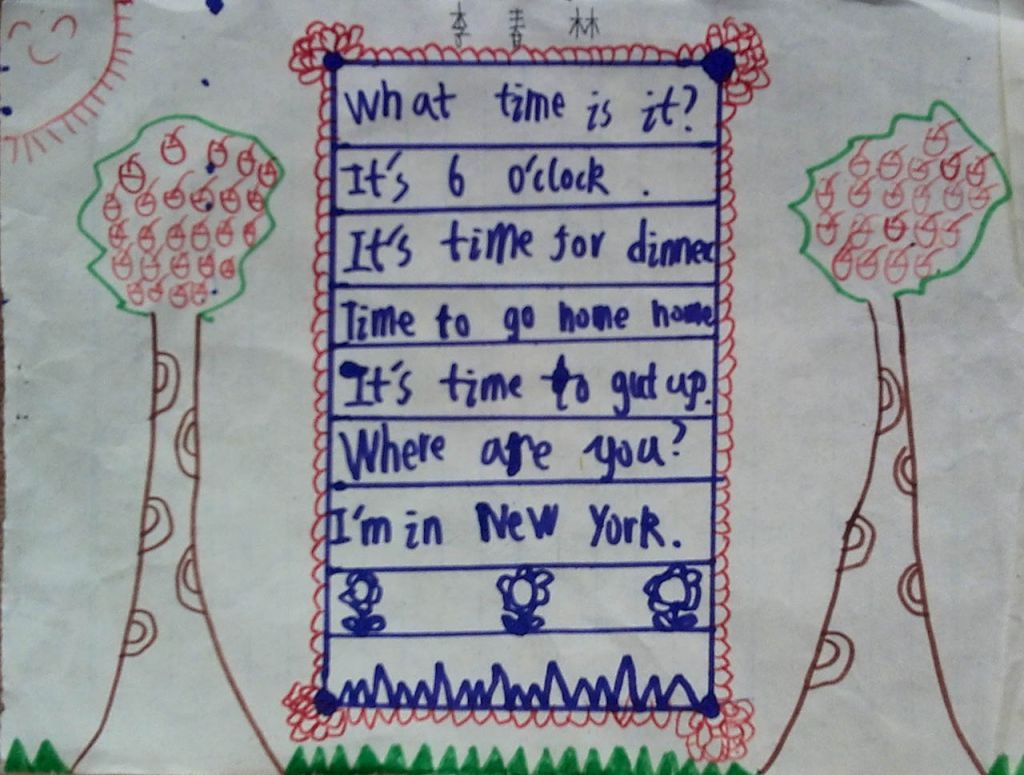 李 青 林
What time is it?
It's 6 o'clock .
It's time for dinner
Time to go home home
It's time to gut up.
Where are you?
I'm in New York.